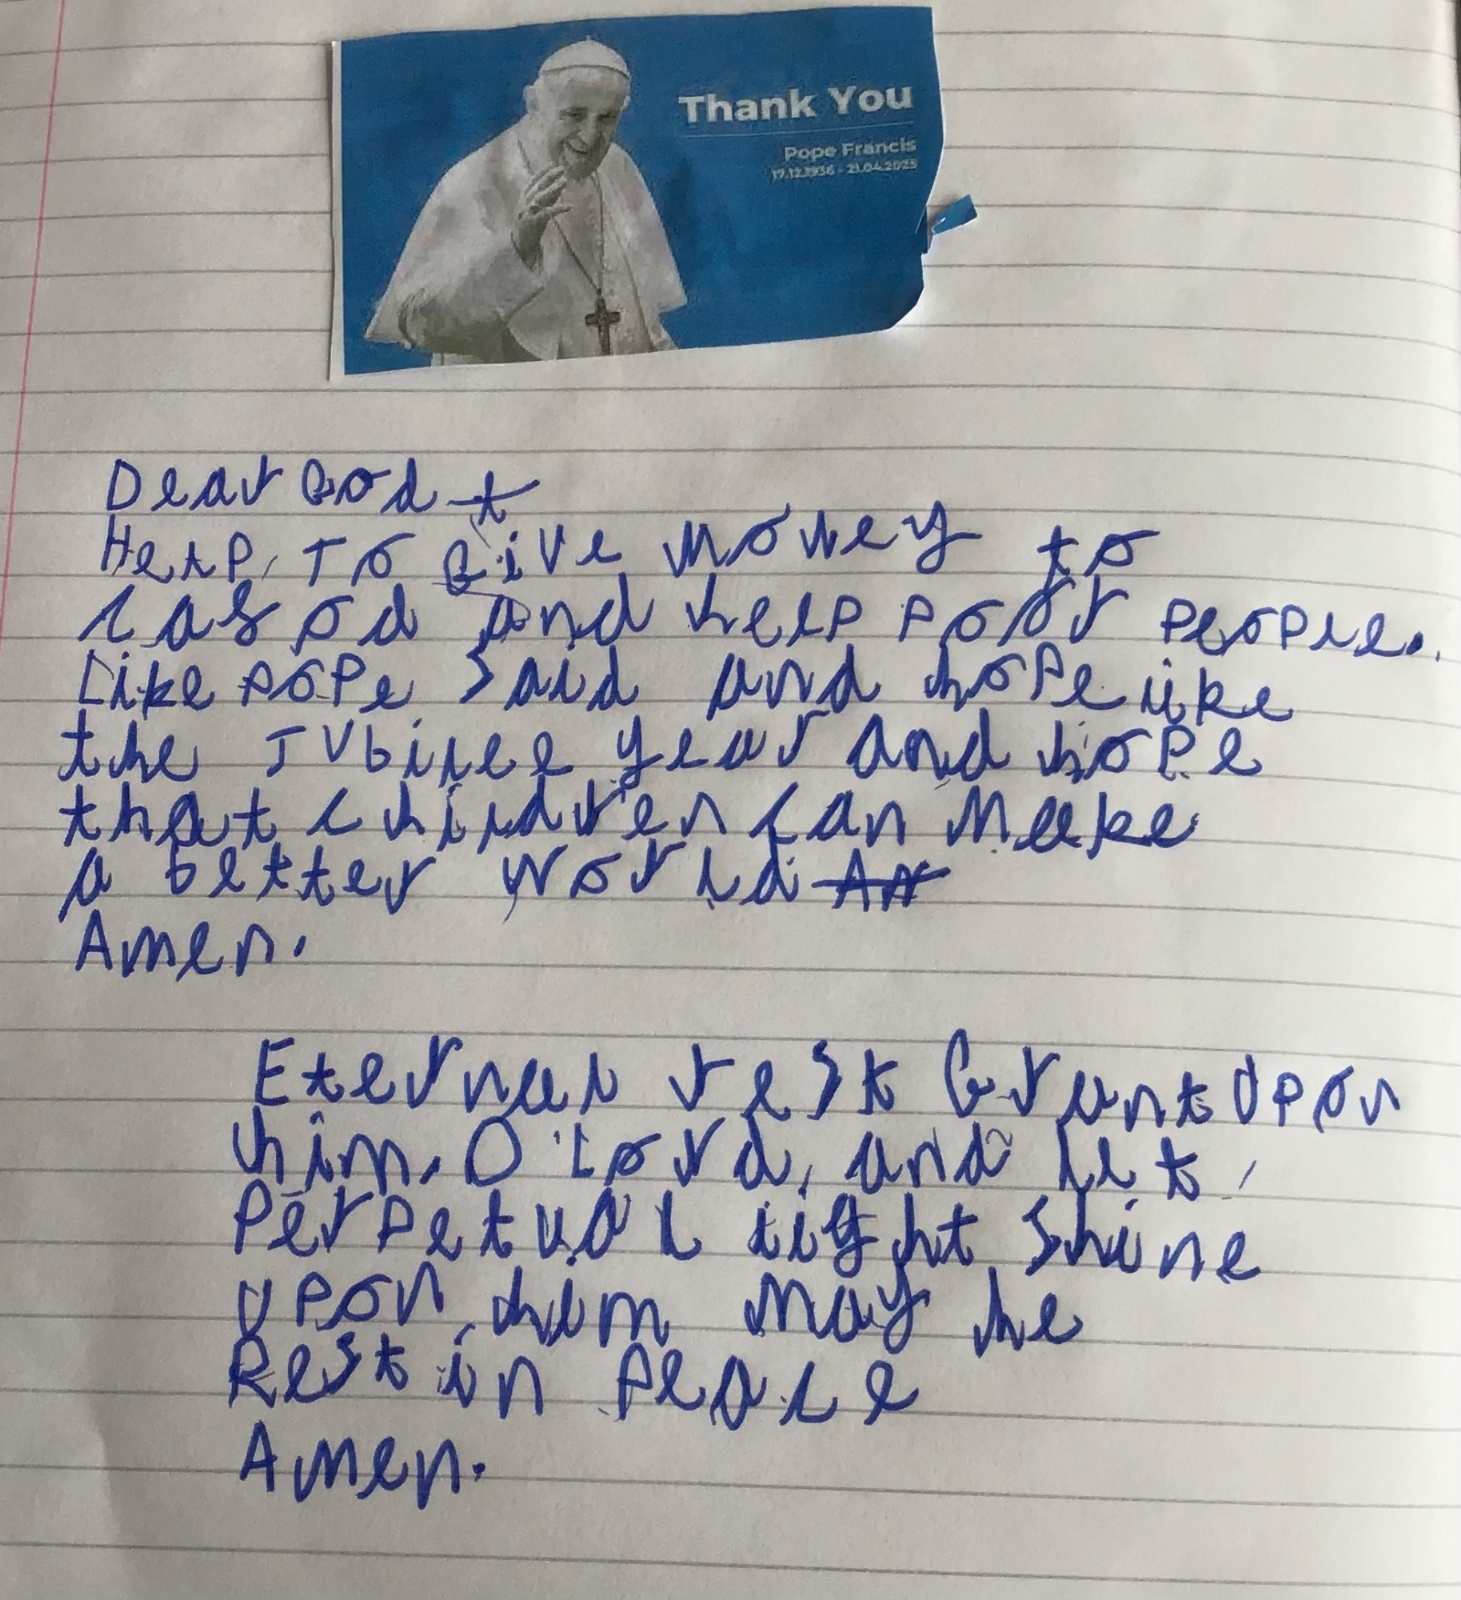 Thank You
Pope Francis
17.12.1936 - 21.04.2025
Dear God t
Help To Give money to
cafod and help poor people.
Like pope said and hope like
the Jubilee year and hope
that children can make
a better world An
Amen.
Eternal rest Grant Upon
him, O Lord, and let
Perpetual light shine
upon him may he
Rest in peace
Amen.